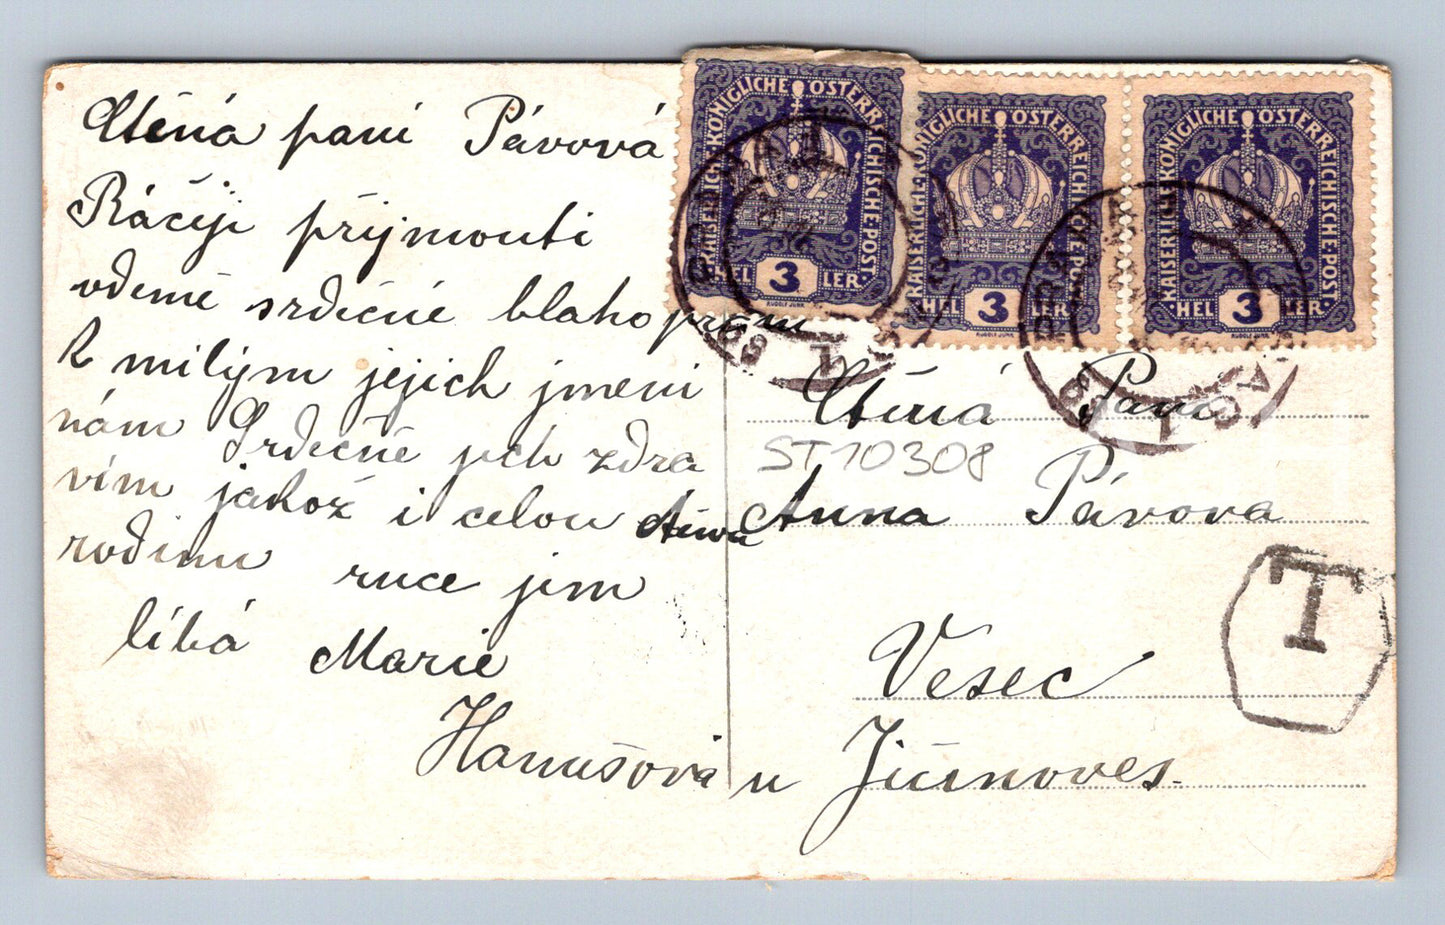 Ctěná paní Pávová
Ráčeji přijmouti
vdečné srdečné blahopřání
K milým jejich jmeni
nám Srdečně jich zdra
vím jakož i celou ctěnou
rodinu ruce jim
líbá Marie
Hanušová
KAISERLICHE·KÖNIGLICHE ÖSTERREICHISCHE·POST·
HEL 3 LER
RUDOLF JUNK
KAISERLICHE·KÖNIGLICHE ÖSTERREICHISCHE·POST·
HEL 3 LER
RUDOLF JUNK
KAISERLICHE·KÖNIGLICHE ÖSTERREICHISCHE·POST·
HEL 3 LER
RUDOLF JUNK
Ctěná Paní
ST10308
Anna Pávova
T
Vesec
u Jičinoves.